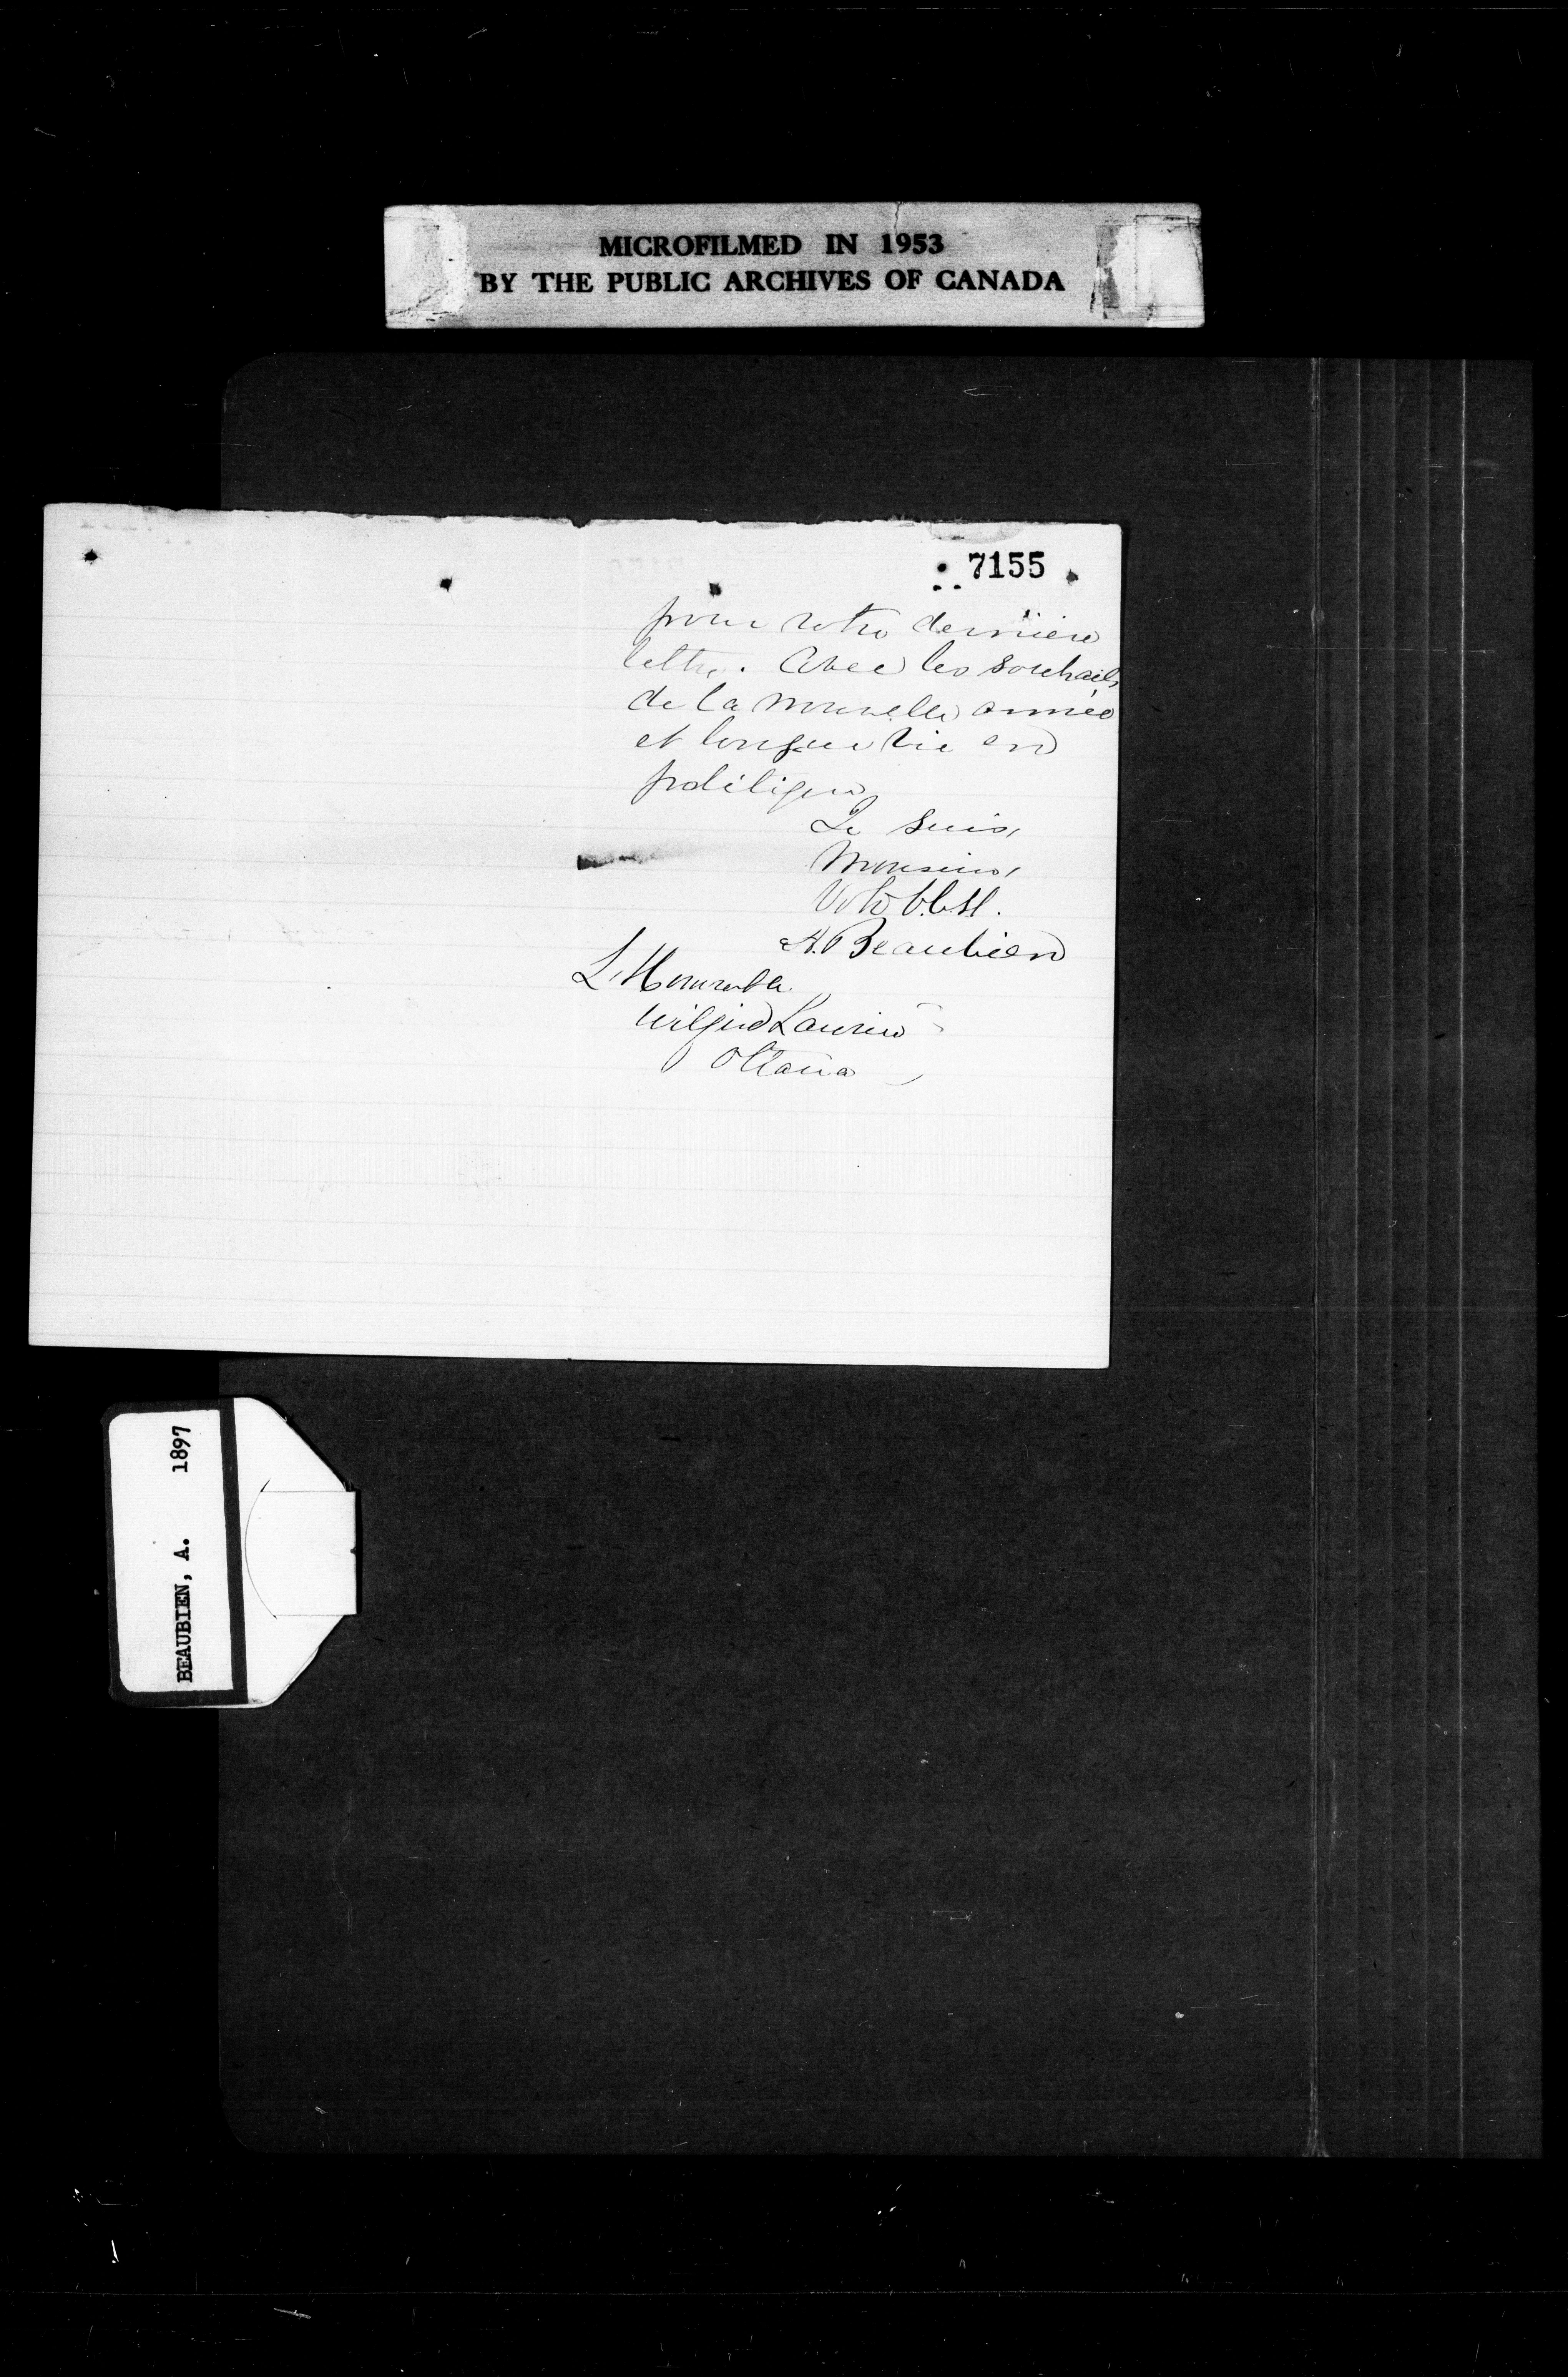 MICROFILMED IN 1953
BY THE PUBLIC ARCHIVES OF CANADA
7155
pour votre dernière
lettre. Avec les souhaits
de la nouvelle année
et longue vie en
politique
Je suis,
Monsieur,
Votre
A. Beaubien
L'Honorable
Wilfrid Laurier
Ottawa
BEAUBIEN, A. 1897